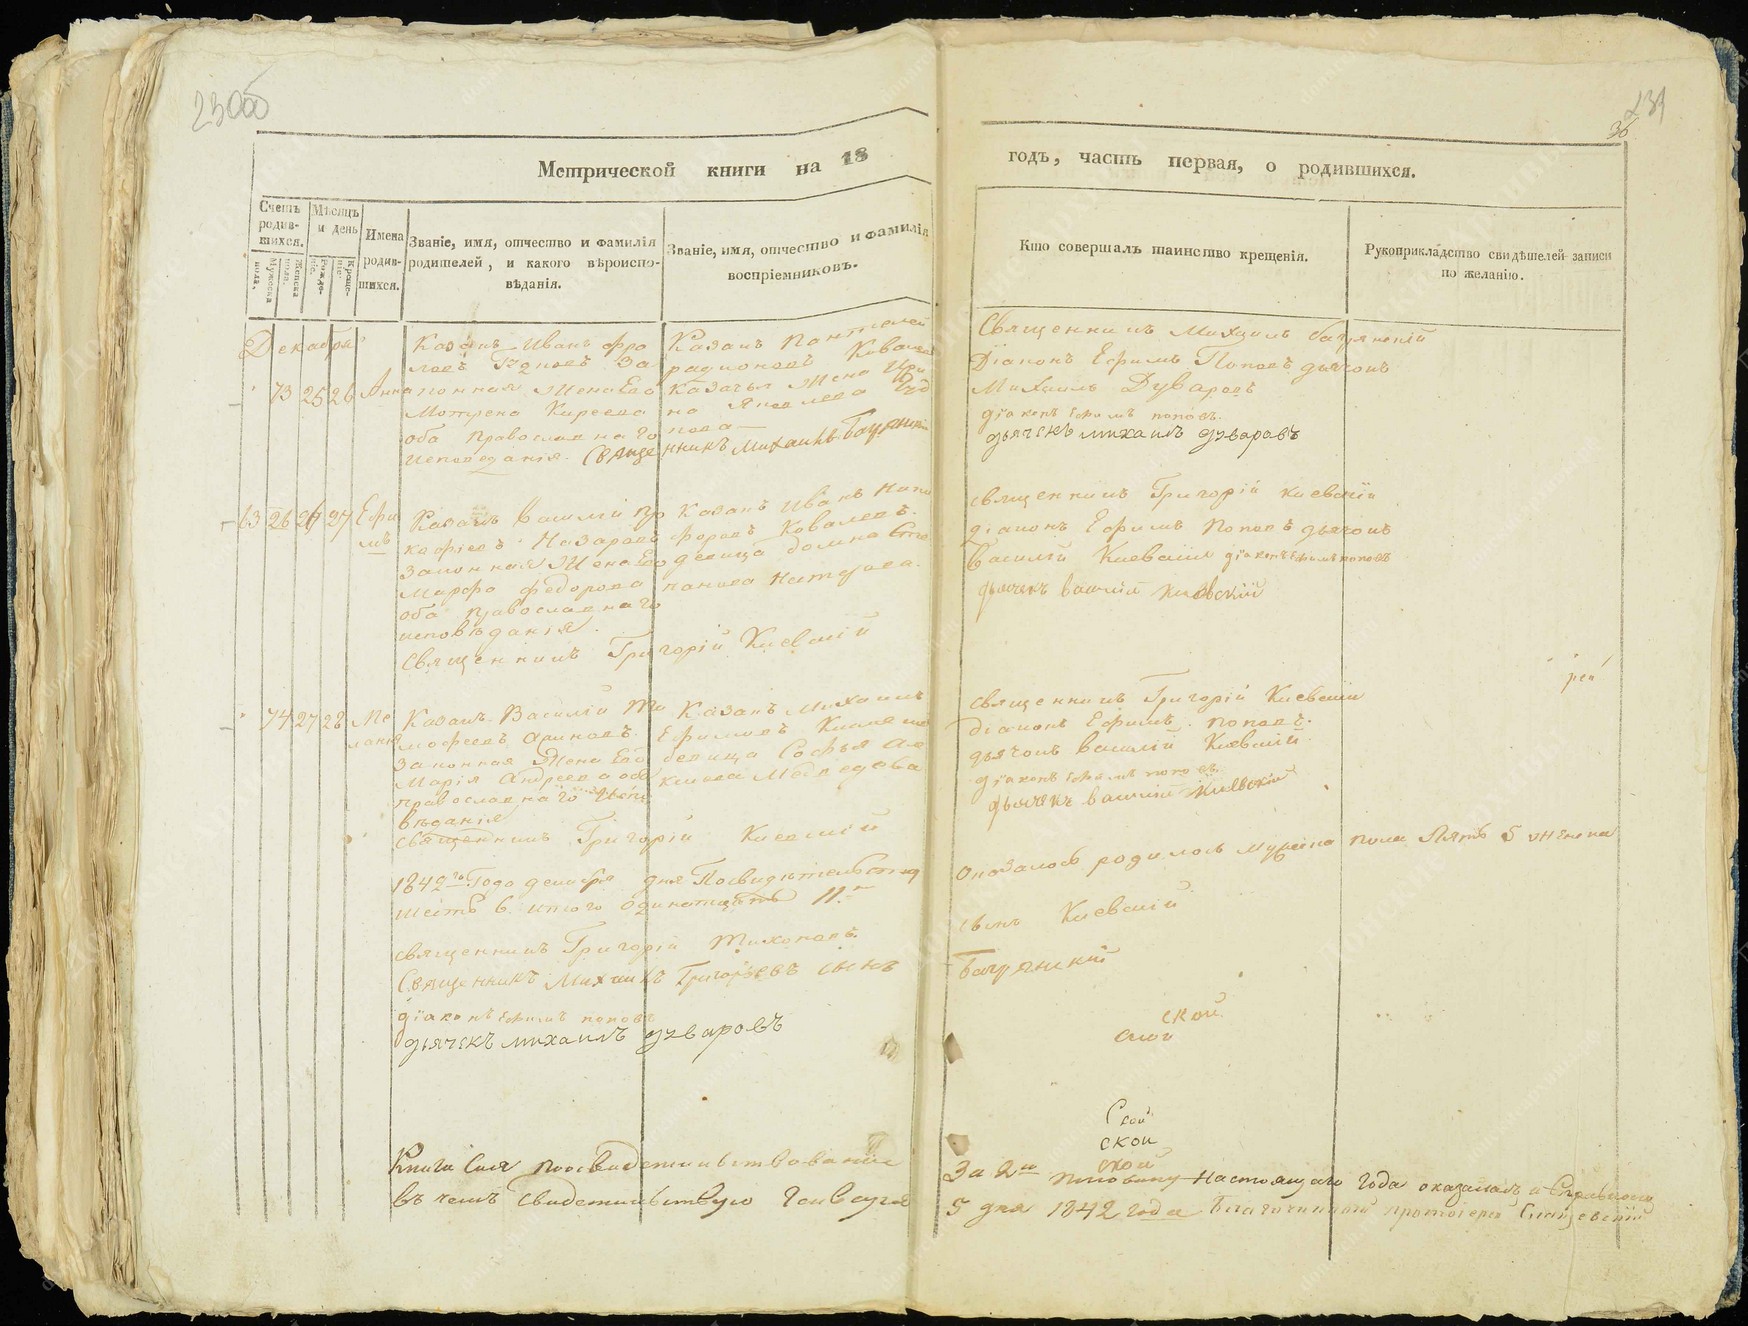 230об
231
36
Метрической книги на 18
годъ, часть первая, о родившихся.
Счетъ родив-шихся.
Мужеска пола.
Женска пола.
Мѣсяцъ и день
Рожде-ніе.
Креще-ніе.
Имена родив-шихся.
Званіе, имя, отчество и фамилія
родителей, и какого вѣроиспо-
вѣданія.
Званіе, имя, отчество и фамилія
воспріемниковъ.
Кто совершалъ таинство крещенія.
Рукоприкладство свидѣтелей записи
по желанію.
Декабря
73 25 26 Анна
Казакъ Иванъ Фро
ловъ За-
конная Жена Его
Мотрена Киреева
оба православнаго
исповеданія. Священникъ Михаилъ Багрянскій
Казакъ Пантелей
радионовъ Ковалев
Казачья Жена Ири
на Яковлева
нова
Священникъ Михаилъ багрянскій
Діаконъ Ефимъ Поповъ дьячокъ
Михаилъ Дуваровъ
діаконъ Ефимъ поповъ.
дьячекъ михаилъ дуваровъ
63 26 26 27 Ефи
мъ
Казакъ Василій Про
кофіевъ Назаровъ
Законная Жена Его
Марфа федорова
оба православнаго
исповѣданія.
Священникъ Григорій Киевскій
Казакъ Иванъ Ники
форовъ Ковалевъ.
девица домна Сте
панова
священникъ Григорій киевскій
діаконъ Ефимъ Поповъ дьячокъ
Василій Киевскій діаконъ Ефимъ поповъ
дьячекъ василій киевскій
74 27 28 Ме
ланія
Казакъ Василій Ти
мофеевъ
Законная Жена Его
Марія Андреева оба
православнаго Испо
вѣданія
священникъ Григорій Киевскій
Казакъ Михаилъ
Ефимовъ
девица Софья Але
ксеева Медведева
священникъ Григорій Киевскій
діаконъ Ефимъ. поповъ.
дьячокъ василій Киевскій.
діаконъ Ефимъ поповъ
дьячекъ василий киевский
1842го Года декабря дня По свидетельству
Оказалось родилось мужеска пола Пять 5 женска
шесть 6. итого одинатцеть 11.
священникъ Григорій Тихоновъ
сынъ Киевскій
Священникъ Михаилъ Григорьевъ сынъ
Багрянскій
діаконъ Ефимъ поповъ
дьячекъ михаилъ дуваровъ
ской
ской
Ской
скои
ской
Книга Сия по освидетельствованіи
За 2ю половину Настоящаго года оказалась исправною
въ чемъ свидетельствую Генваря
5 дня 1842 года Благочинный протоіерей